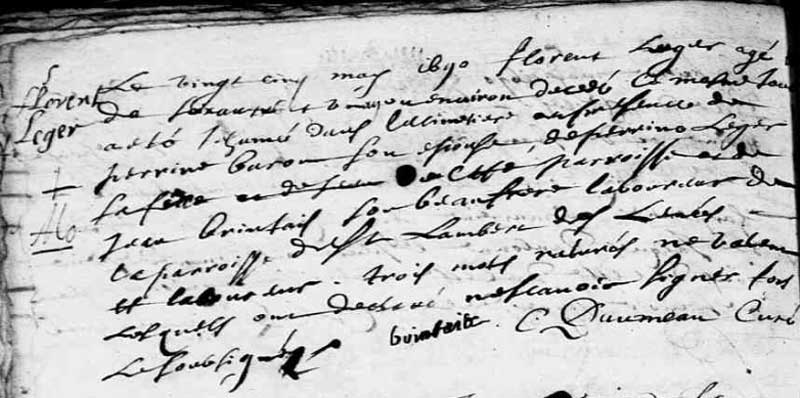 Florent
Leger
Le vingt cinq may 1690 florent Leger agé
de soixante et un an ou environ decedé Ce mesme jour
a esté Inhumé dans le Cimetiere en presence de
perrine baron son espouse, de perrine Leger
sa fille et de Jean cette parroisse et de
Jean brintais son beaufrere laboureur de
la parroisse de St Lambert des Levées
et laboureur . trois mots raturés ne valent
Lesquels ont declaré ne scavoir signer fors
Le soubsigné
brintais C Daumeau Curé